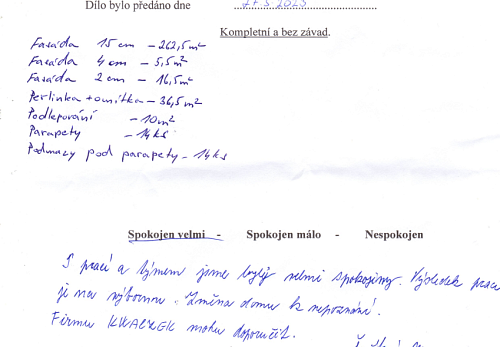 Dílo bylo předáno dne
Kompletní a bez závad.
Fasáda 15 cm - 262,5 m²
Fasáda 4 cm - 5,5 m²
Fasáda 2 cm - 16,5 m²
Perlinka + omítka - 36,5 m²
Podlepování - 10 m²
Parapety - 14 ks
Podmazy pod parapety - 14 ks
Spokojen velmi - Spokojen málo - Nespokojen
S prací a týmem jsme byly velmi spokojeny. Výsledek práce
je na výbornou. Změna domu k nepoznání.
Firmu KWACZEK mohu doporučit.